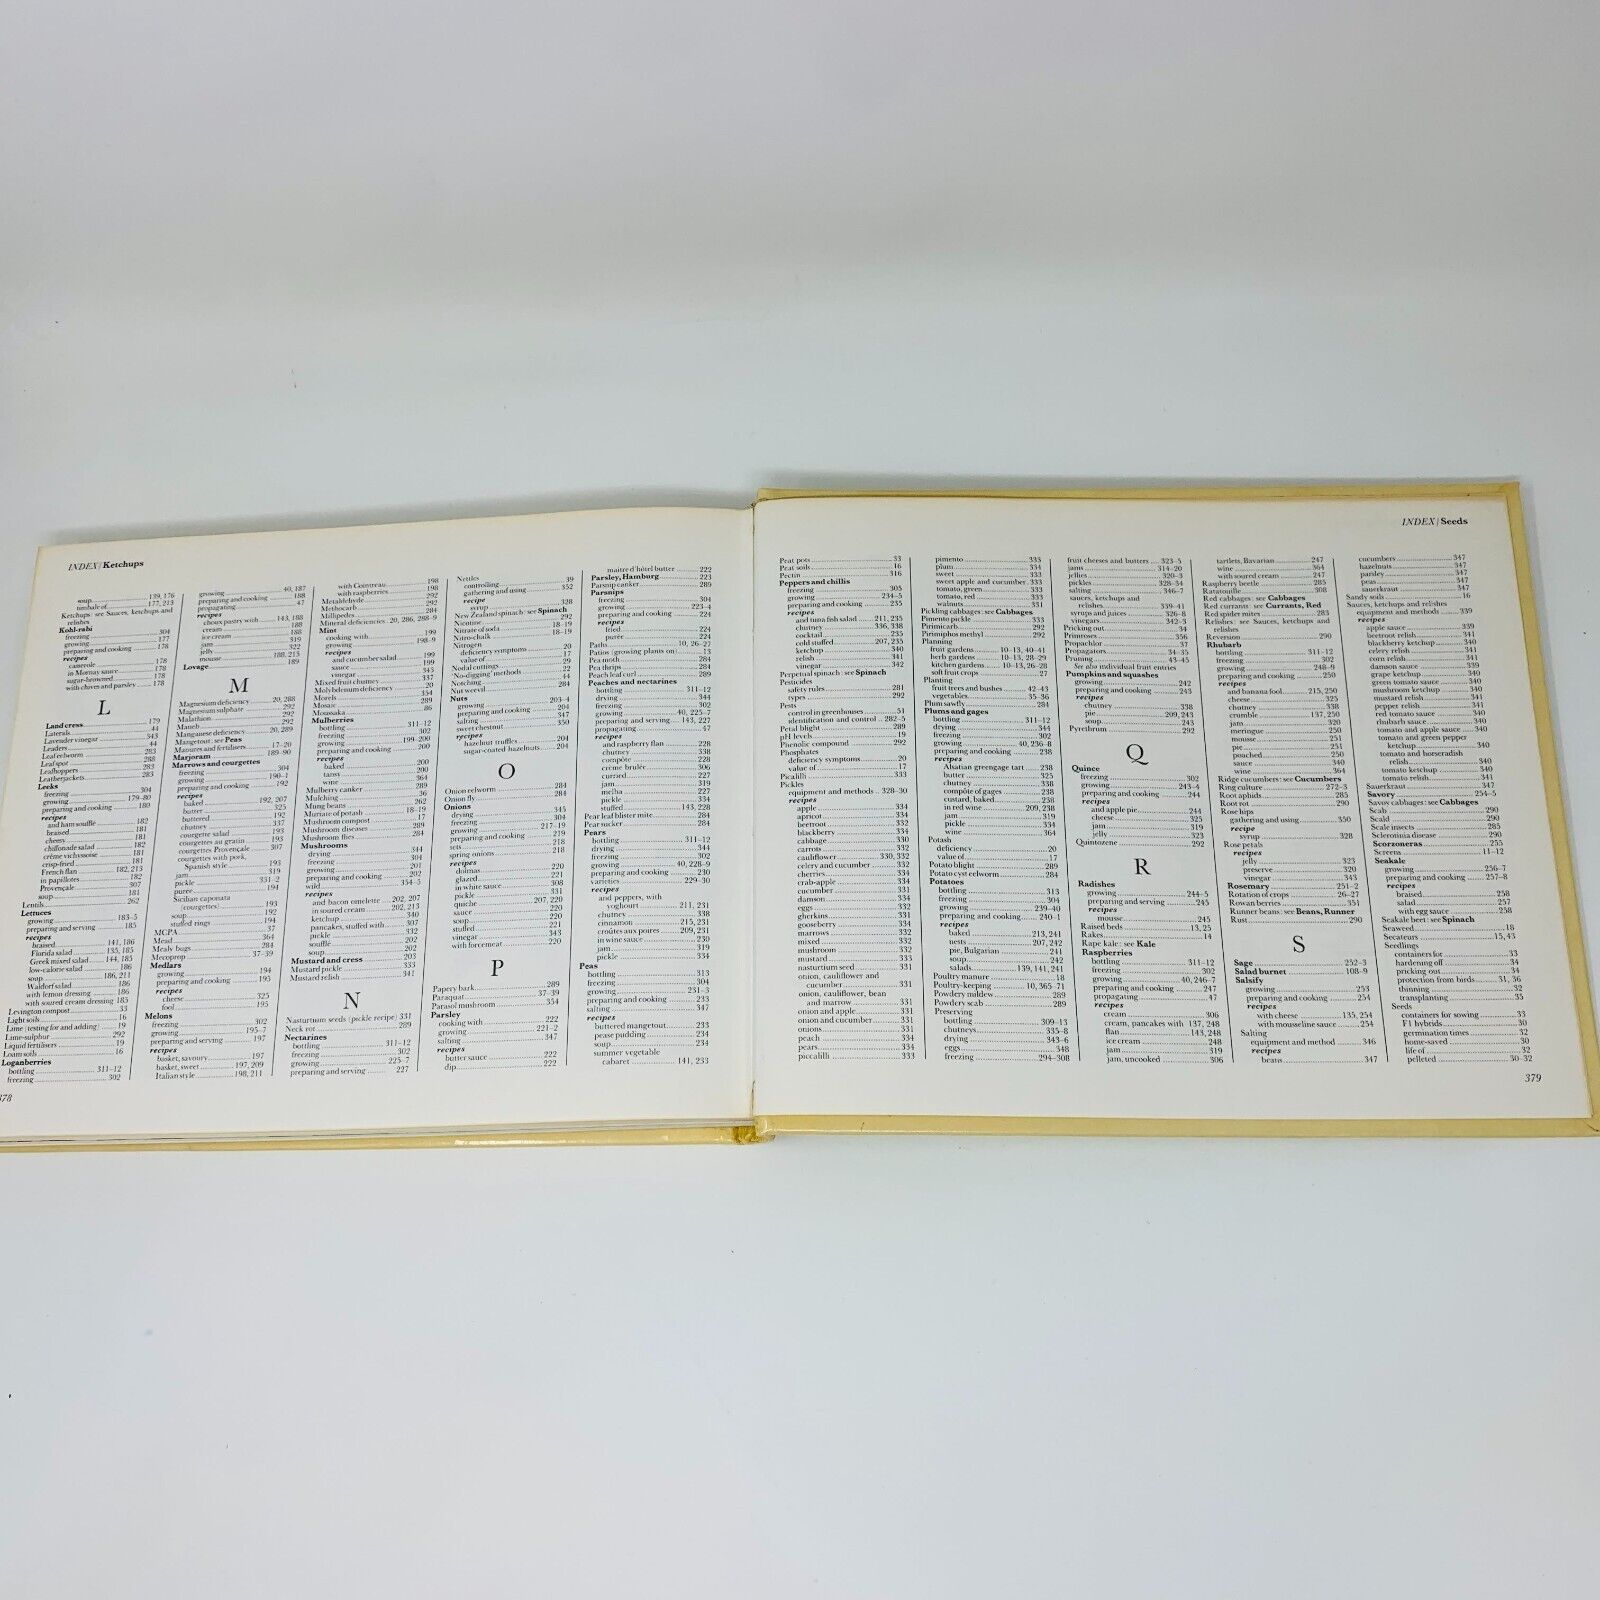 INDEX/Ketchups
soup 139, 176
timbale of 177, 213
Ketchups: see Sauces, ketchups and
relishes
Kohl-rabi
freezing 304
growing 177
preparing and cooking 178
recipes
casserole 178
in Mornay sauce 178
sugar-browned 178
with chives and parsley 178
L
Land cress 179
Laterals 44
Lavender vinegar 343
Leaders 44
Leaf eelworm 283
Leaf spot 288
Leafhoppers 283
Leatherjackets 283
Leeks
freezing 304
growing 179–80
preparing and cooking 180
recipes
and ham soufflé 182
braised 181
cheesy 181
chiffonade salad 182
crème vichyssoise 181
crisp-fried 181
French flan 182, 213
in papillotes 182
Provençale 307
soup 181
Lentils 262
Lettuces
growing 183–5
preparing and serving 185
recipes
braised 141, 186
Florida salad 135, 185
Greek mixed salad 144, 185
low-calorie salad 186
soup 186, 211
Waldorf salad 186
with lemon dressing 186
with soured cream dressing 185
Levington compost 33
Light soils 16
Lime (testing for and adding) 19
Lime-sulphur 292
Liquid fertilisers 19
Loam soils 16
Loganberries
bottling 311–12
freezing 302
growing 40, 187
preparing and cooking 188
propagating 47
recipes
choux pastry with 143, 188
cream 188
ice cream 188
jam 319
jelly 322
mousse 188, 213
Lovage 189
M
Magnesium deficiency 20, 288
Magnesium sulphate 292
Malathion 292
Maneb 292
Manganese deficiency 20, 289
Mangetout: see Peas
Manures and fertilisers 17–20
Marjoram 189–90
Marrows and courgettes
freezing 304
growing 190–1
preparing and cooking 192
recipes
baked 192, 207
butter 325
buttered 192
chutney 337
courgette salad 193
courgettes au gratin 193
courgettes Provençale 307
courgettes with pork,
Spanish style 193
jam 319
pickle 331–2
purée 194
Sicilian caponata
(courgettes) 193
soup 192
stuffed rings 194
MCPA 37
Mead 364
Mealy bugs 284
Mecoprop 37–39
Medlars
growing 194
preparing and cooking 195
recipes
cheese 325
fool 195
Melons
freezing 302
growing 195–7
preparing and serving 197
recipes
basket, savoury 197
basket, sweet 197, 209
Italian style 198, 211
with Cointreau 198
with raspberries 198
Metaldehyde 292
Methocarb 292
Millipedes 284
Mineral deficiencies 20, 286, 288–9
Mint
cooking with 199
growing 198–9
recipes
and cucumber salad 199
sauce 199
vinegar 343
Mixed fruit chutney 337
Molybdenum deficiency 20
Morels 354
Mosaic 289
Moussaka 86
Mulberries
bottling 311–12
freezing 302
growing 199–200
preparing and cooking 200
recipes
baked 200
tansy 200
wine 364
Mulberry canker 289
Mulching 36
Mung beans 262
Muriate of potash 18–19
Mushroom compost 17
Mushroom diseases 289
Mushroom flies 284
Mushrooms
drying 344
freezing 304
growing 201
preparing and cooking 202
wild 354–5
recipes
and bacon omelette 202, 207
in soured cream 202, 213
ketchup 340
pancakes, stuffed with 307
pickle 332
soufflé 202
soup 202
Mustard and cress 203
Mustard pickle 333
Mustard relish 341
N
Nasturtium seeds (pickle recipe) 331
Neck rot 289
Nectarines
bottling 311–12
freezing 302
growing 225–7
preparing and serving 227
Nettles 39
controlling 352
gathering and using
recipe
syrup 328
New Zealand spinach: see Spinach
Nicotine 292
Nitrate of soda 18–19
Nitro-chalk 18–19
Nitrogen
deficiency symptoms 20
value of 17
Nodal cuttings 29
'No-digging' methods 22
Notching 44
Nut weevil 284
Nuts
growing 203–4
preparing and cooking 204
salting 347
sweet chestnut 350
recipes
hazelnut truffles 204
sugar-coated hazelnuts 204
O
Onion eelworm 284
Onion fly 284
Onions
drying 345
freezing 304
growing 217–19
preparing and cooking 219
sets 218
spring onions 218
recipes
dolmas 220
glazed 221
in white sauce 308
pickle 331
quiche 207, 220
sauce 220
soup 220
stuffed 221
vinegar 343
with forcemeat 220
P
Papery bark 289
Paraquat 37–39
Parasol mushroom 354
Parsley
cooking with 222
growing 221–2
salting 347
recipes
butter sauce 222
dip 222
maître d'hôtel butter 222
Parsley, Hamburg 223
Parsnip canker 289
Parsnips
freezing 304
growing 223–4
preparing and cooking 224
recipes
fried 224
purée 224
Paths 10, 26–27
Patios (growing plants on) 13
Pea moth 284
Pea thrips 284
Peach leaf curl 289
Peaches and nectarines
bottling 311–12
drying 344
freezing 302
growing 40, 225–7
preparing and serving 143, 227
propagating 47
recipes
and raspberry flan 228
chutney 338
compôte 228
crème brulée 306
curried 227
jam 319
melba 227
pickle 334
stuffed 143, 228
Pear leaf blister mite 284
Pear sucker 284
Pears
bottling 311–12
drying 344
freezing 302
growing 40, 228–9
preparing and cooking 230
varieties 229–30
recipes
and peppers, with
yoghourt 211, 231
chutney 338
cinnamon 215, 231
croûtes aux poires 209, 231
in wine sauce 230
jam 319
pickle 334
Peas
bottling 313
freezing 304
growing 231–3
preparing and cooking 233
salting 347
recipes
buttered mangetout 233
pease pudding 234
soup 234
summer vegetable
cabaret 141, 233
378
INDEX/Seeds
Peat pots 33
Peat soils 16
Pectin 316
Peppers and chillis
freezing 305
growing 234–5
preparing and cooking 235
recipes
and tuna fish salad 211, 235
chutney 336, 338
cocktail 235
cold stuffed 207, 235
ketchup 340
relish 341
vinegar 342
Perpetual spinach: see Spinach
Pesticides
safety rules 281
types 292
Pests
control in greenhouses 51
identification and control 282–5
Petal blight 289
pH levels 19
Phenolic compound 292
Phosphates
deficiency symptoms 20
value of 17
Picalilli 333
Pickles
equipment and methods 328–30
recipes
apple 334
apricot 334
beetroot 332
blackberry 334
cabbage 330
carrots 332
cauliflower 330, 332
celery and cucumber 332
cherries 334
crab-apple 334
cucumber 331
damson 334
eggs 332
gherkins 331
gooseberry 334
marrows 332
mixed 332
mushroom 332
mustard 333
nasturtium seed 331
onion, cauliflower and
cucumber 331
onion, cauliflower, bean
and marrow 331
onion and apple 331
onion and cucumber 331
onions 331
peach 334
pears 334
piccalilli 333
pimento 333
plum 334
sweet 333
sweet apple and cucumber 333
tomato, green 333
tomato, red 333
walnuts 331
Pickling cabbages: see Cabbages
Pimento pickle 333
Pirimicarb 292
Pirimiphos methyl 292
Planning
fruit gardens 10–13, 40–41
herb gardens 10–13, 28–29
kitchen gardens 10–13, 26–28
soft fruit crops 27
Planting
fruit trees and bushes 42–43
vegetables 35–36
Plum sawfly 284
Plums and gages
bottling 311–12
drying 344
freezing 302
growing 40, 236–8
preparing and cooking 238
recipes
Alsatian greengage tart 238
butter 325
chutney 338
compôte of gages 238
custard, baked 238
in red wine 209, 238
jam 319
pickle 334
wine 364
Potash
deficiency 20
value of 17
Potato blight 289
Potato cyst eelworm 284
Potatoes
bottling 313
freezing 304
growing 239–40
preparing and cooking 240–1
recipes
baked 213, 241
nests 207, 242
pie, Bulgarian 241
soup 242
salads 139, 141, 241
Poultry manure 18
Poultry-keeping 10, 365–71
Powdery mildew 289
Powdery scab 289
Preserving
bottling 309–13
chutneys 335–8
drying 343–6
eggs 348
freezing 294–308
fruit cheeses and butters 323–5
jams 314–20
jellies 320–3
pickles 328–34
salting 346–7
sauces, ketchups and
relishes 339–41
syrups and juices 326–8
vinegars 342–3
Pricking out 34
Primroses 356
Propachlor 37
Propagators 34–35
Pruning 43–45
See also individual fruit entries
Pumpkins and squashes
growing 242
preparing and cooking 243
recipes
chutney 338
pie 209, 243
soup 243
Pyrethrum 292
Q
Quince
freezing 302
growing 243–4
preparing and cooking 244
recipes
and apple pie 244
cheese 325
jam 319
jelly 323
Quintozene 292
R
Radishes
growing 244–5
preparing and serving 245
recipes
mousse 245
Raised beds 13, 25
Rakes 14
Rape kale: see Kale
Raspberries
bottling 311–12
freezing 302
growing 40, 246–7
preparing and cooking 247
propagating 47
recipes
cream 306
cream, pancakes with 137, 248
flan 143, 248
ice cream 248
jam 319
jam, uncooked 306
tartlets, Bavarian 247
wine 364
with soured cream 247
Raspberry beetle 285
Ratatouille 308
Red cabbages: see Cabbages
Red currants: see Currants, Red
Red spider mites 283
Relishes: see Sauces, ketchups and
relishes
Reversion 290
Rhubarb
bottling 311–12
freezing 302
growing 248–9
preparing and cooking 250
recipes
and banana fool 215, 250
cheese 325
chutney 338
crumble 137, 250
jam 320
meringue 250
mousse 251
pie 251
poached 250
sauce 340
wine 364
Ridge cucumbers: see Cucumbers
Ring culture 272–3
Root aphids 285
Root rot 290
Rose hips
gathering and using 350
recipe
syrup 328
Rose petals
recipes
jelly 323
preserve 320
vinegar 343
Rosemary 251–2
Rotation of crops 26–27
Rowan berries 351
Runner beans: see Beans, Runner
Rust 290
S
Sage 252–3
Salad burnet 108–9
Salsify
growing 253
preparing and cooking 254
recipes
with cheese 135, 254
with mousseline sauce 254
Salting
equipment and method 346
recipes
beans 347
cucumbers 347
hazelnuts 347
parsley 347
peas 347
sauerkraut 347
Sandy soils 16
Sauces, ketchups and relishes
equipment and methods 339
recipes
apple sauce 339
beetroot relish 341
blackberry ketchup 340
celery relish 341
corn relish 341
damson sauce 339
grape ketchup 340
green tomato sauce 340
mushroom ketchup 340
mustard relish 341
pepper relish 341
red tomato sauce 340
rhubarb sauce 340
tomato and apple sauce 340
tomato and green pepper
ketchup 340
tomato and horseradish
relish 340
tomato ketchup 340
tomato relish 341
Sauerkraut 347
Savory 254–5
Savoy cabbages: see Cabbages
Scab 290
Scald 290
Scale insects 285
Sclerotinia disease 290
Scorzoneras 255
Screens 11–12
Seakale
growing 256–7
preparing and cooking 257–8
recipes
braised 258
salad 257
with egg sauce 258
Seakale beet: see Spinach
Seaweed 18
Secateurs 15, 43
Seedlings
containers for 33
hardening off 34
pricking out 34
protection from birds 31, 36
thinning 32
transplanting 35
Seeds
containers for sowing 33
F1 hybrids 30
germination times 32
home-saved 30
life of 32
pelleted 30–32
379